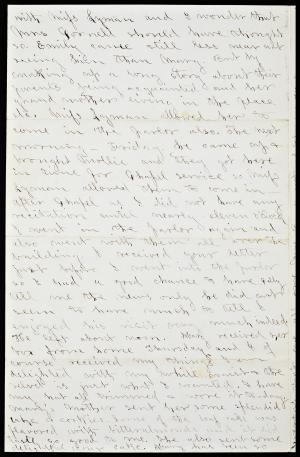 with Miss Lyman and I wonder that
Mrs Cornell should have thought
so. Emily cared still less near not
seeing him than Mary. But by
making up a long story about their
parents being acquainted and her
grand mother living in the place
&c. Miss Lyman allowed her to
come in the parlor also. The next
morning - Friday, he came up &
brought Mollie and they got here
in time for Chapel service so Miss
Lyman allowed them to come in -
after Chapel as I did not have any
recitation until nearly eleven o'clock
I went in the parlor again and
also went with them all over the
building. I received your letter
just before I went into the parlor
so I had a good chance to have
tell me the news only he did not
seem to have much to tell. I
enjoyed his visit very much indeed.
He left about noon. Mary received her
box from home Thursday and of
course received my things. I am
delighted with my
velvet is just what I wanted. I have
my hat all trimmed & wore it to-day.
Mary's mother sent her some splendid
cake
flavored with
so good to me. She also sent some
cake. Mary has been so